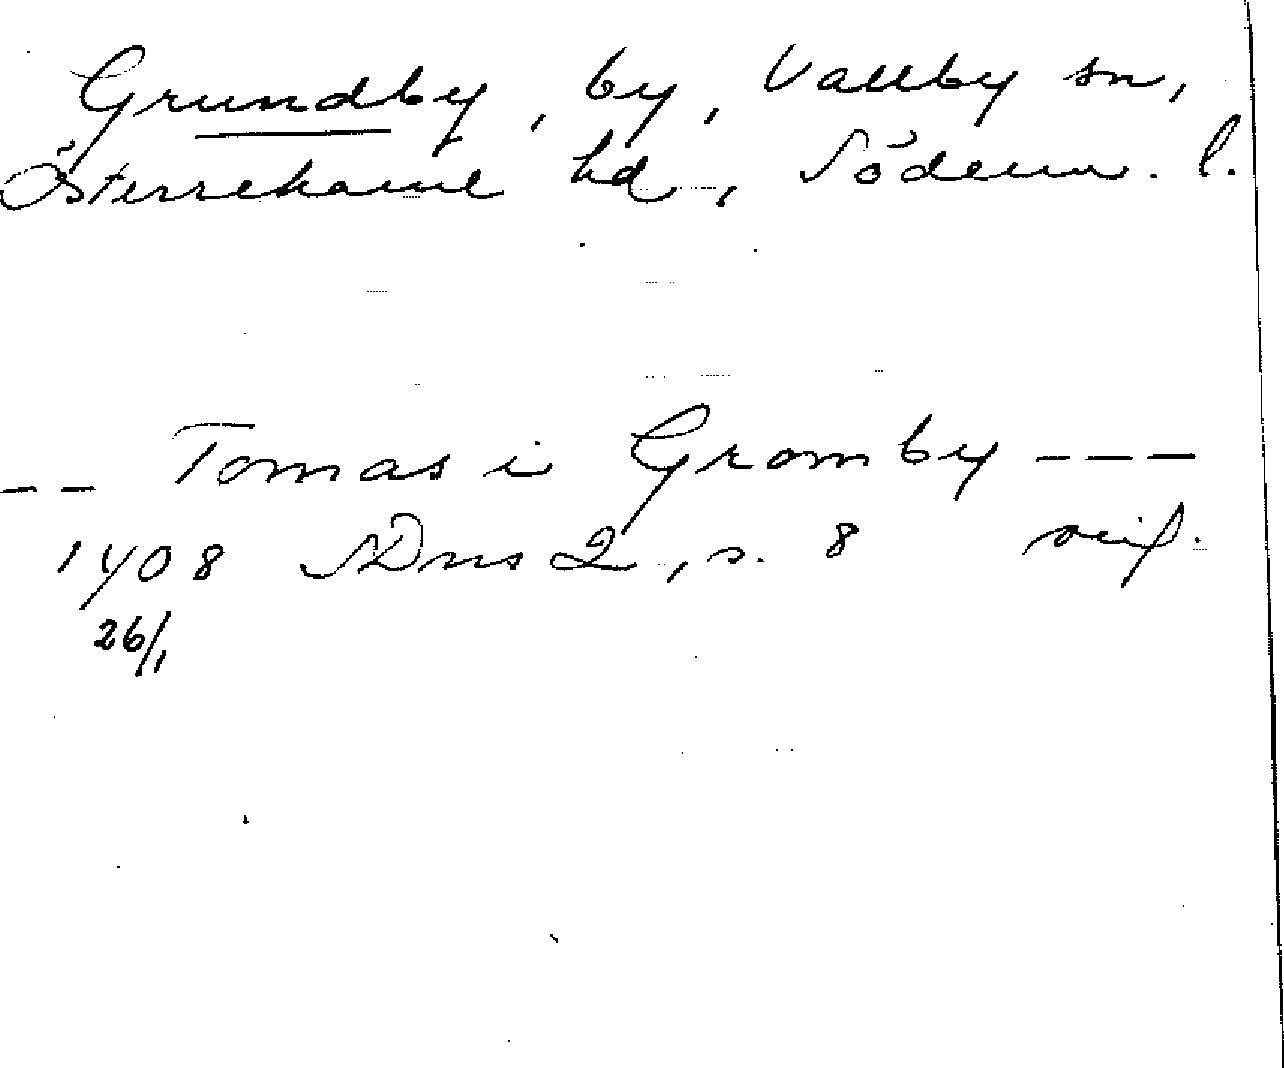 Grundby, by, Vallby sn,
Österrekarne hd, Söderm. l.
-- Tomas i Gromby ---
1408 SDns 2, s. 8
26/1